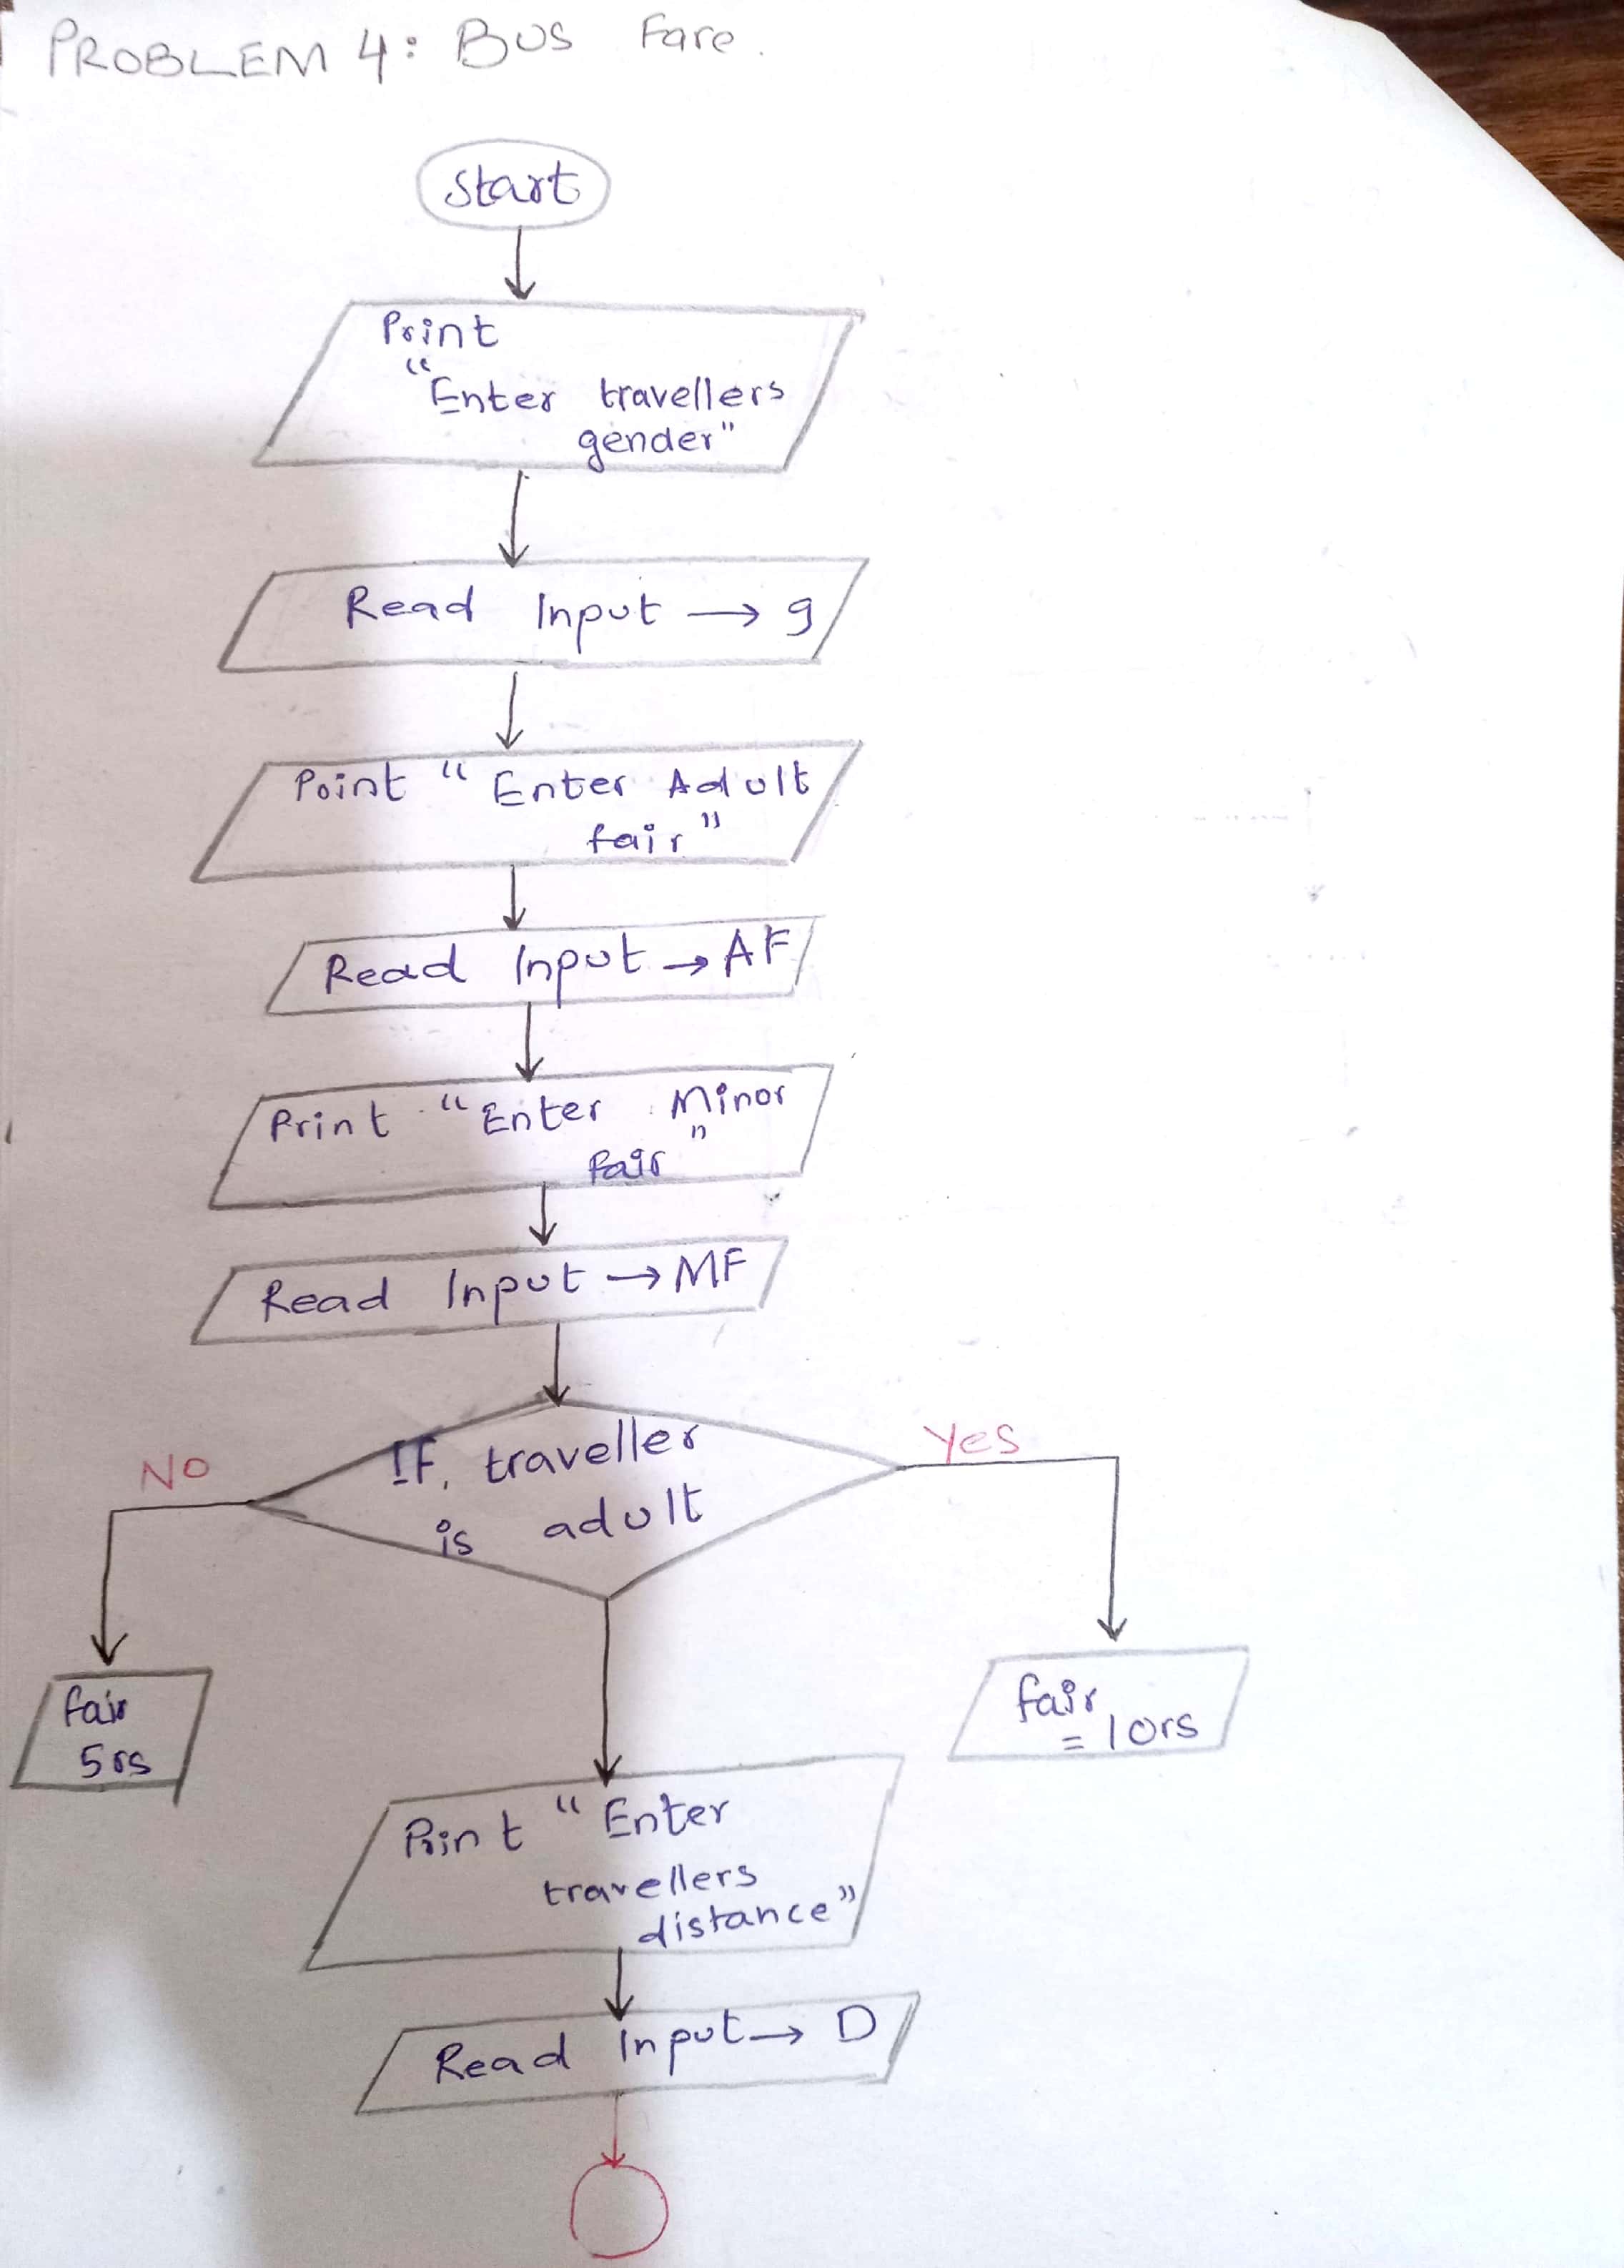 PROBLEM 4: BUS Fare.
Start
Print
"Enter travellers
gender"
Read Input → g
Print "Enter Adult
fair"
Read Input → AF
Print "Enter Minor
fair"
Read Input → MF
NO
If, traveller
is adult
Yes
fair
5rs
fair
= 10rs
Print "Enter
travellers
distance"
Read Input → D